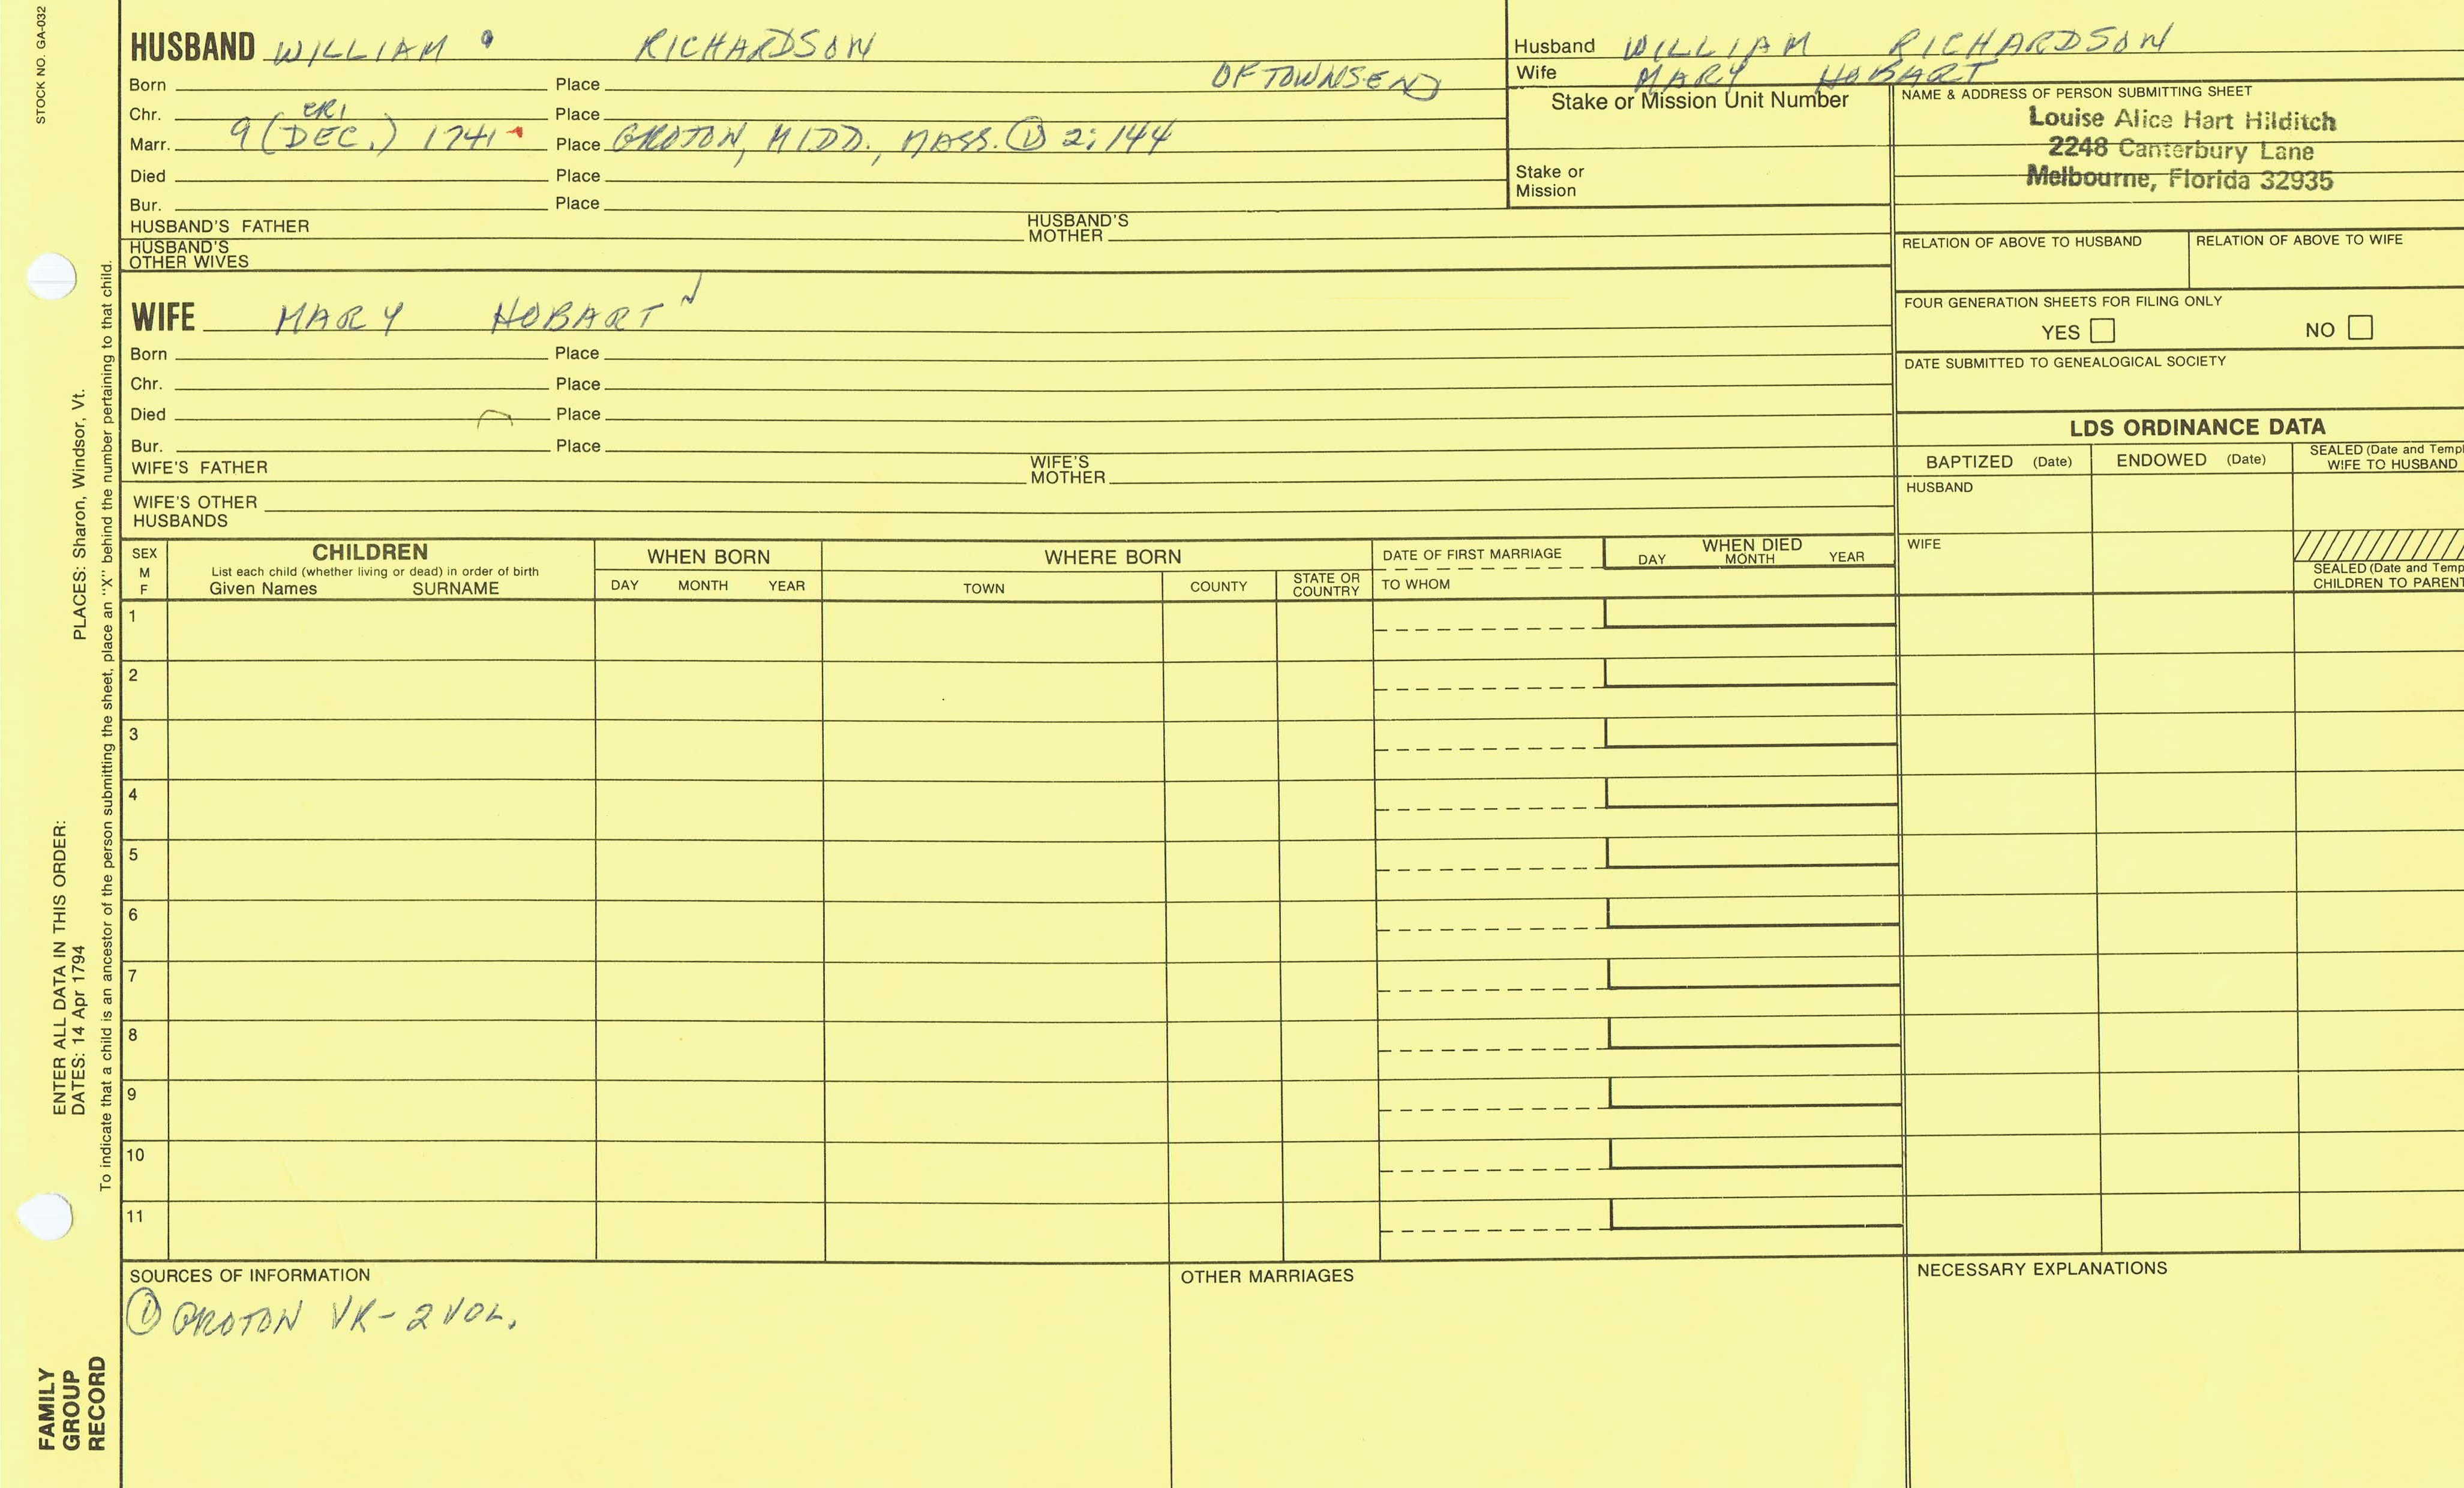 STOCK NO. GA-032
HUSBAND WILLIAM RICHARDSON
Born Place OF TOWNSEND
Chr. Place
FRI
Marr. 9 (DEC.) 1741 Place GROTON, MIDD., MASS. ① 2:144
Died Place
Bur. Place
HUSBAND'S FATHER HUSBAND'S MOTHER
HUSBAND'S OTHER WIVES
Husband WILLIAM RICHARDSON
Wife MARY HOBART
Stake or Mission Unit Number
Stake or Mission
NAME & ADDRESS OF PERSON SUBMITTING SHEET
Louise Alice Hart Hilditch
2248 Canterbury Lane
Melbourne, Florida 32935
RELATION OF ABOVE TO HUSBAND RELATION OF ABOVE TO WIFE
FOUR GENERATION SHEETS FOR FILING ONLY
YES NO
DATE SUBMITTED TO GENEALOGICAL SOCIETY
WIFE MARY HOBART
Born Place
Chr. Place
Died Place
Bur. Place
WIFE'S FATHER WIFE'S MOTHER
WIFE'S OTHER HUSBANDS
LDS ORDINANCE DATA
BAPTIZED (Date) ENDOWED (Date) SEALED (Date and Temp
WIFE TO HUSBAND
HUSBAND
WIFE
SEALED (Date and Temp
CHILDREN TO PARENT
SEX
M
F
CHILDREN
List each child (whether living or dead) in order of birth
Given Names SURNAME
WHEN BORN
DAY MONTH YEAR
WHERE BORN
TOWN COUNTY STATE OR COUNTRY
DATE OF FIRST MARRIAGE
TO WHOM
WHEN DIED
DAY MONTH YEAR
1
2
3
4
5
6
7
8
9
10
11
SOURCES OF INFORMATION
① GROTON VR - 2 VOL.
OTHER MARRIAGES
NECESSARY EXPLANATIONS
PLACES: Sharon, Windsor, Vt.
ENTER ALL DATA IN THIS ORDER:
DATES: 14 Apr 1794
To indicate that a child is an ancestor of the person submitting the sheet, place an "X" behind the number pertaining to that child.
FAMILY
GROUP
RECORD